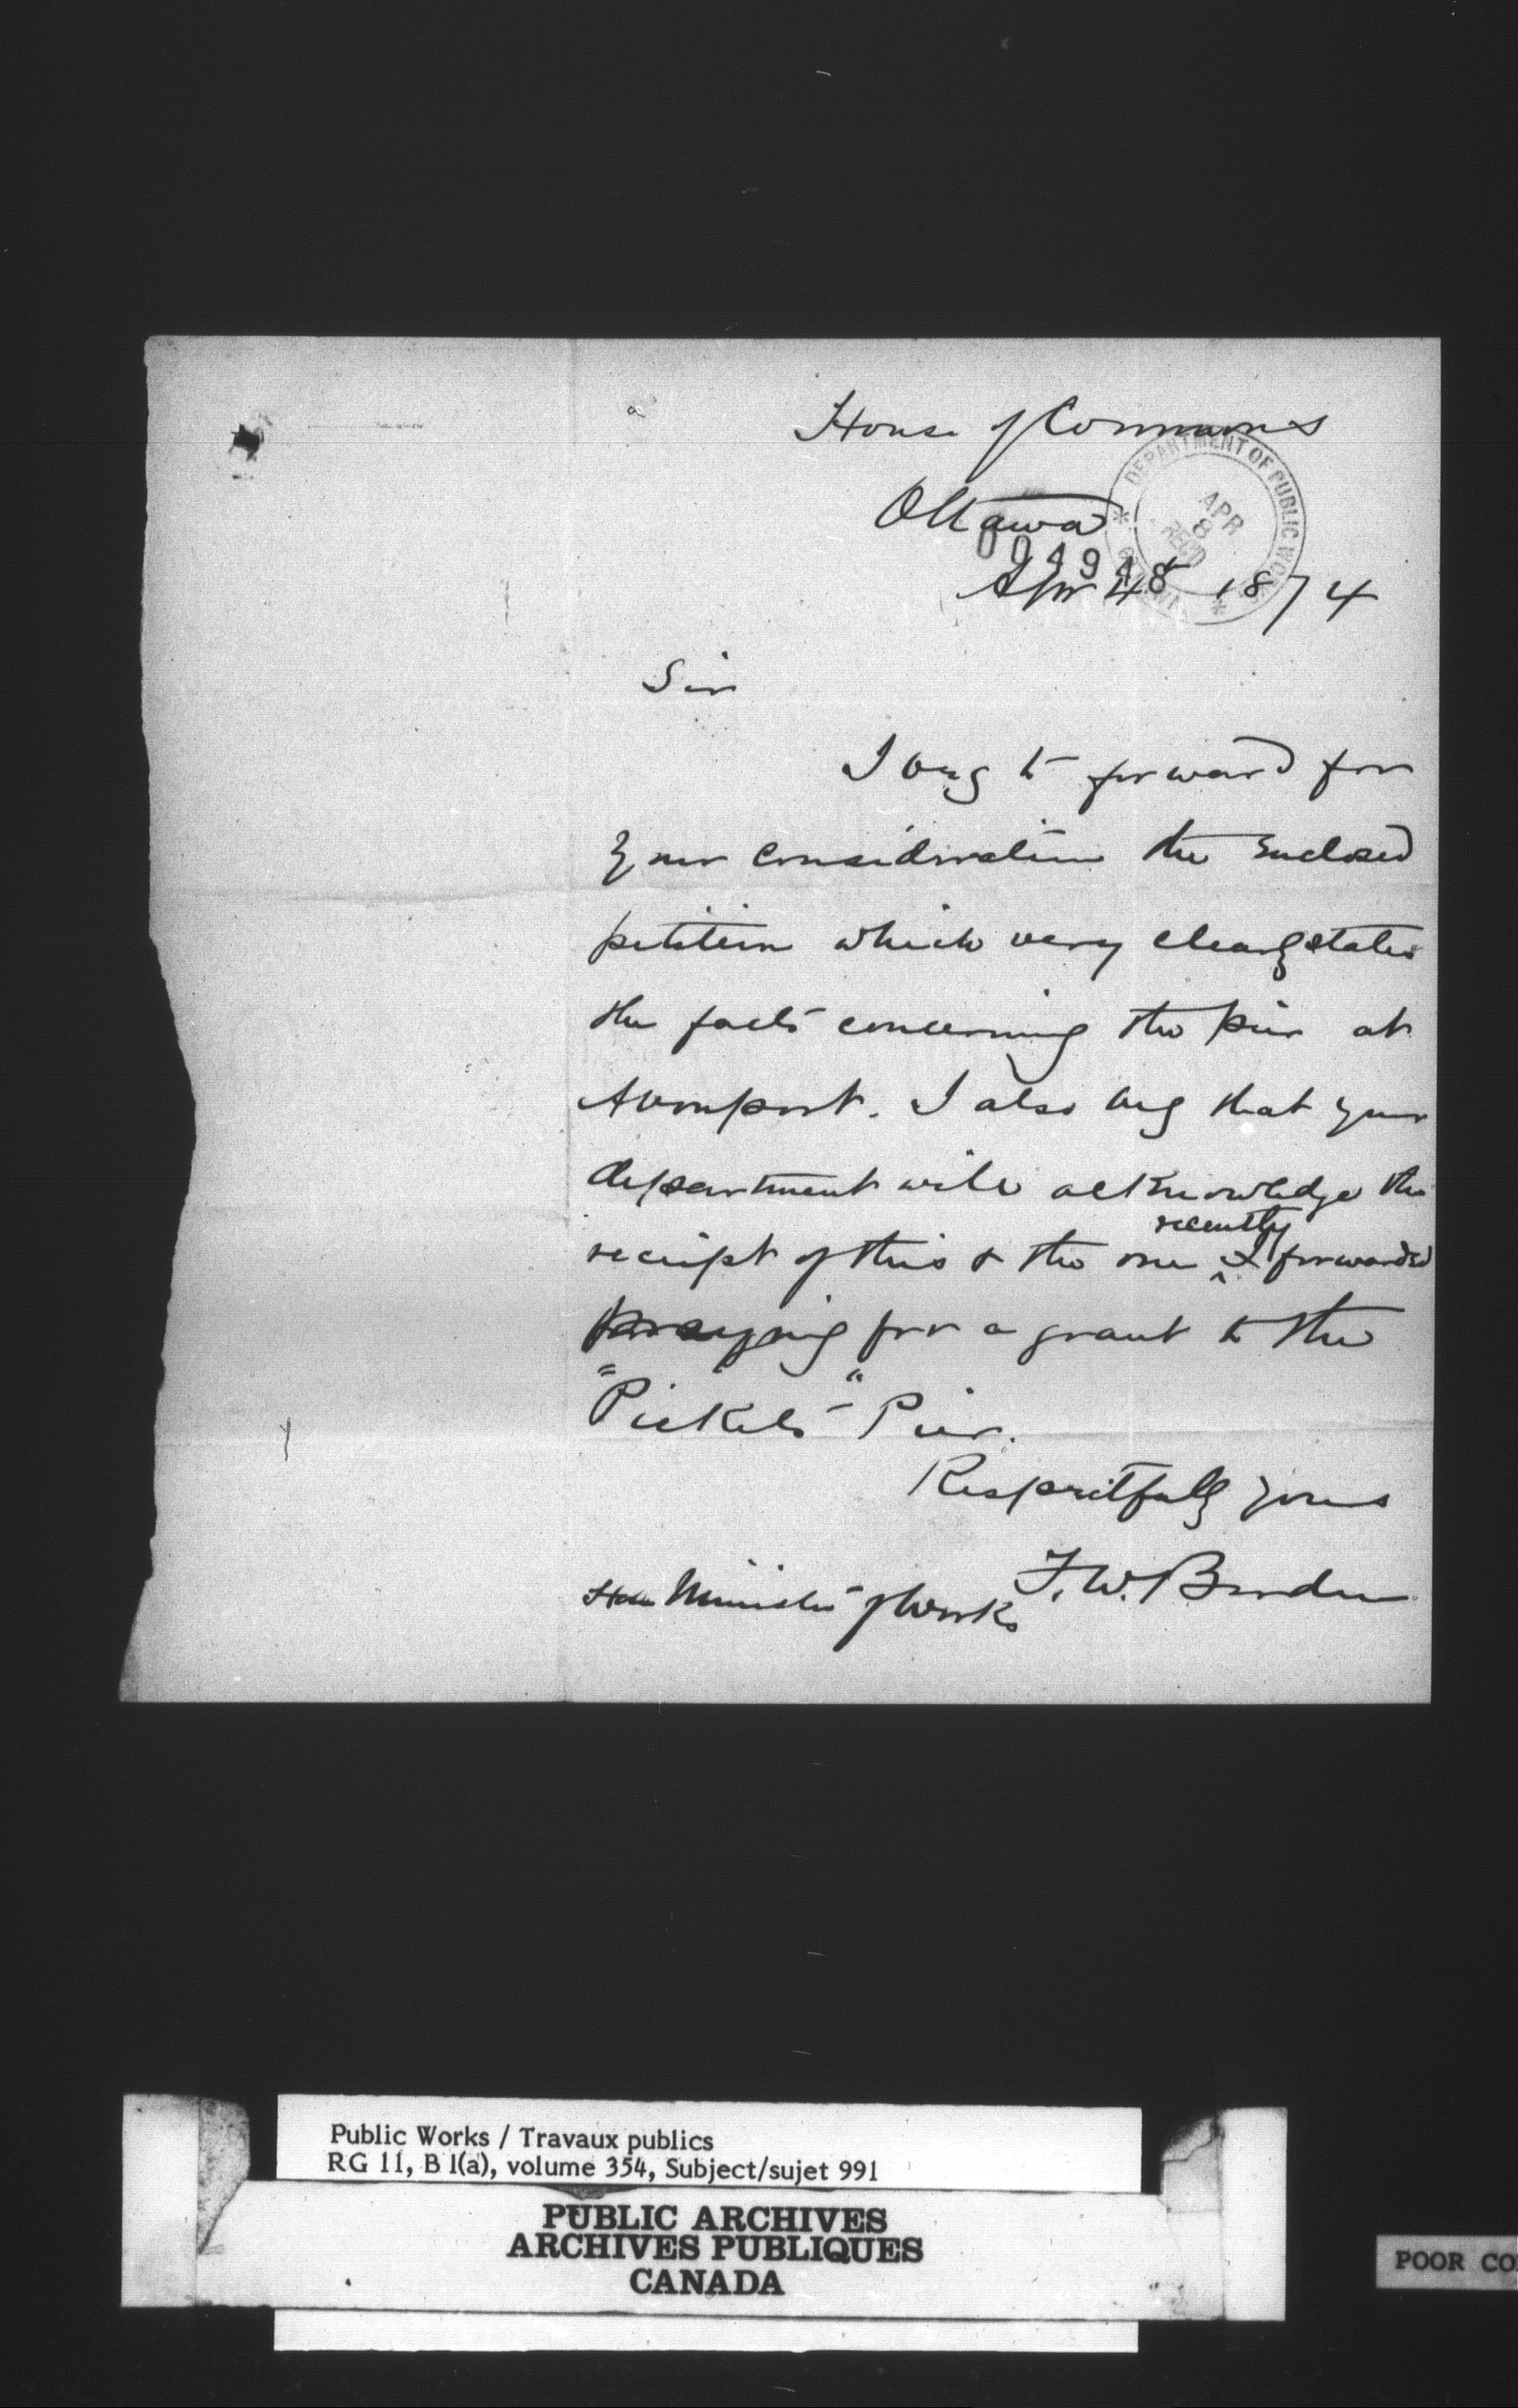 House of Commons
Ottawa
04948
Apr 4 1874
DEPARTMENT OF PUBLIC WORKS
APR
8
RECD
Sir
I beg to forward for
your consideration the enclosed
petition which very clearly states
the facts concerning the pier at
Avonport. I also beg that your
department will acknowledge the
recently
receipt of this & the one ^ I forwarded
praying for a grant to the
"Pickets" Pier.
Respectfully yours
F. W. Borden
Hon Minister of Works
Public Works / Travaux publics
RG 11, B 1(a), volume 354, Subject/sujet 991
PUBLIC ARCHIVES
ARCHIVES PUBLIQUES
CANADA
POOR CO